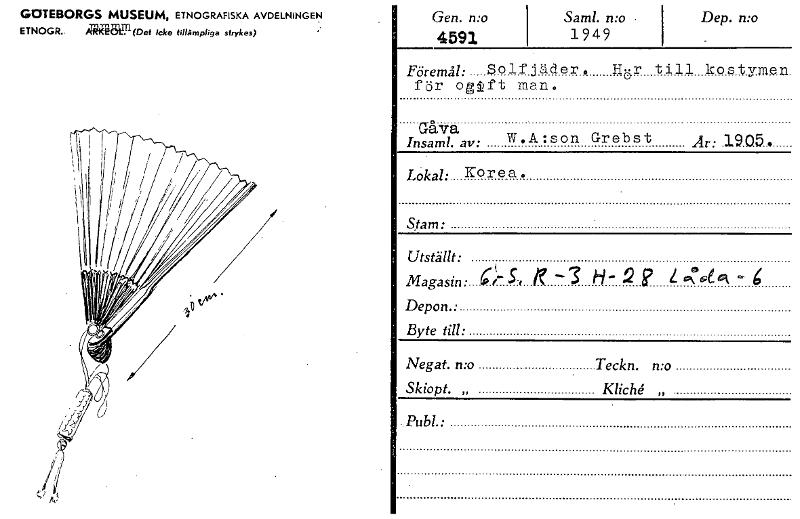 GÖTEBORGS MUSEUM, ETNOGRAFISKA AVDELNINGEN
ETNOGR. ARKEOL. (Det icke tillämpliga strykes)
30 cm.
Gen. n:o Saml. n:o Dep. n:o
4591 1949
Föremål: Solfjäder. Hör till kostymen
för ogift man.
Gåva
Insaml. av: W.A:son Grebst År: 1905.
Lokal: Korea.
Stam:
Utställt:
Magasin: G-S. R-3 H-28 Låda-6
Depon.:
Byte till:
Negat. n:o Teckn. n:o
Skiopt. „ Kliché „
Publ.: